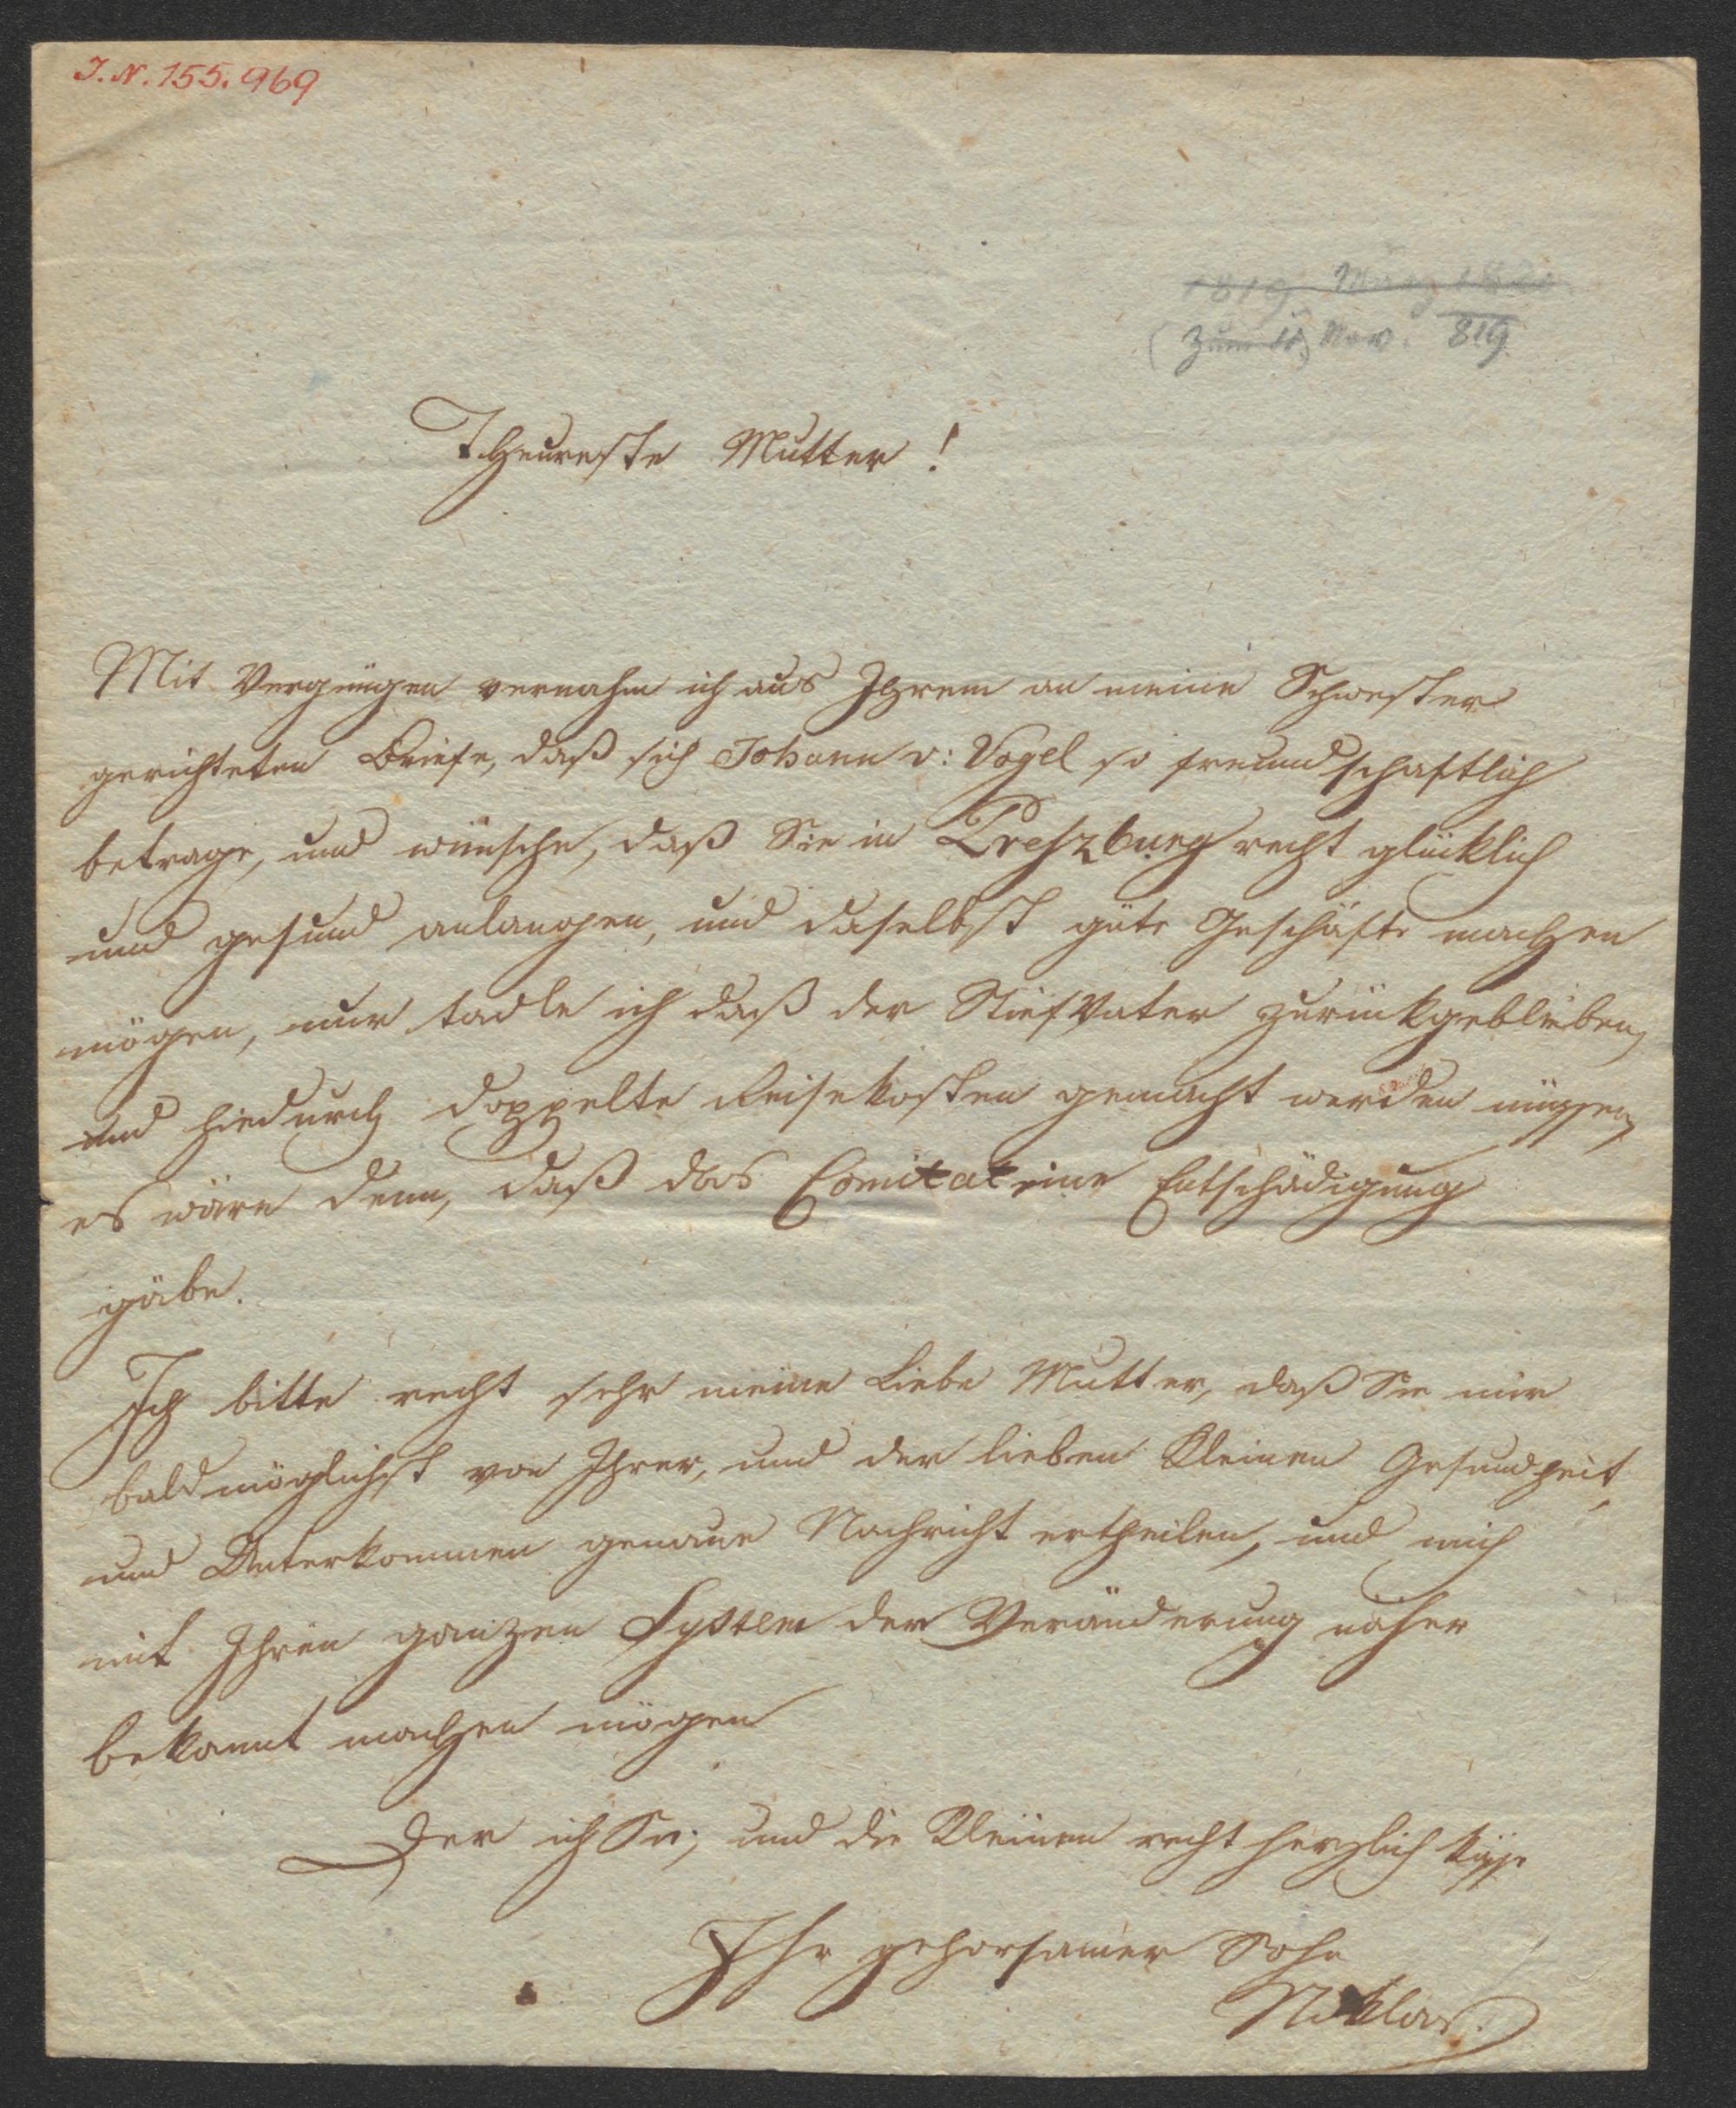 I. N. 155.969
1819 März 1820
(Zum 18) Nov. 819
Theureste Mutter!
Mit Vergnügen vernahm ich aus Ihrem an meine Schwester
gerichteten Briefe, daß sich Johann v: Vogel so freundschaftlich
betrage, und wünsche, daß Sie in Preszburg recht glücklich
und gesund anlangen, und daselbst gute Geschäfte machen
mögen, nur tadle ich daß der Stiefvater zurückgeblieben,
und hiedurch doppelte Reisekosten gemacht werden müssen,
es wäre denn, daß das Comitat eine Entschädigung
gäbe.
Ich bitte recht sehr meine liebe Mutter, daß Sie mir
baldmöglichst von Ihrer, und der lieben Kleinen Gesundheit,
und Unterkommen genaue Nachricht ertheilen, und mich
mit Ihren ganzen System der Veränderung näher
bekannt machen mögen
Der ich Sie, und die Kleinen recht herzlich küsse
Ihr gehorsamer Sohn
Niklas.